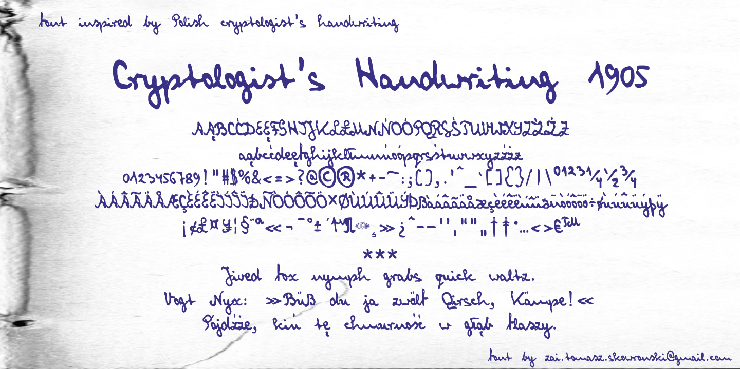 font inspired by Polish cryptologist's handwriting
Cryptologist's Handwriting 1905
AĄBCĆDEĘFGHIJKLŁMNŃOÓPQRSŚTUVWXYZŹŻ
aąbcćdeęfghijklłmnńoópqrsśtuvwxyzźż
0123456789!"#$%&<=>?@©®*+-~:;(),.'^_`[]{}/|\
ÀÁÂÃÄÅÆÇÈÉÊËÌÍÎÏÐÑÒÓÔÕÖ×ØÙÚÛÜÝÞßàáâãäåæçèéêëìíîïðñòóôõö÷øùúûüýþÿ
***
Jived fox nymph grabs quick waltz.
Vogt Nyx: »Büß du ja zwölf Qirsch, Kämpe!«
Pójdźże, kiń tę chmurność w głąb flaszy.
font by zai.tomasz.skowronski@gmail.com